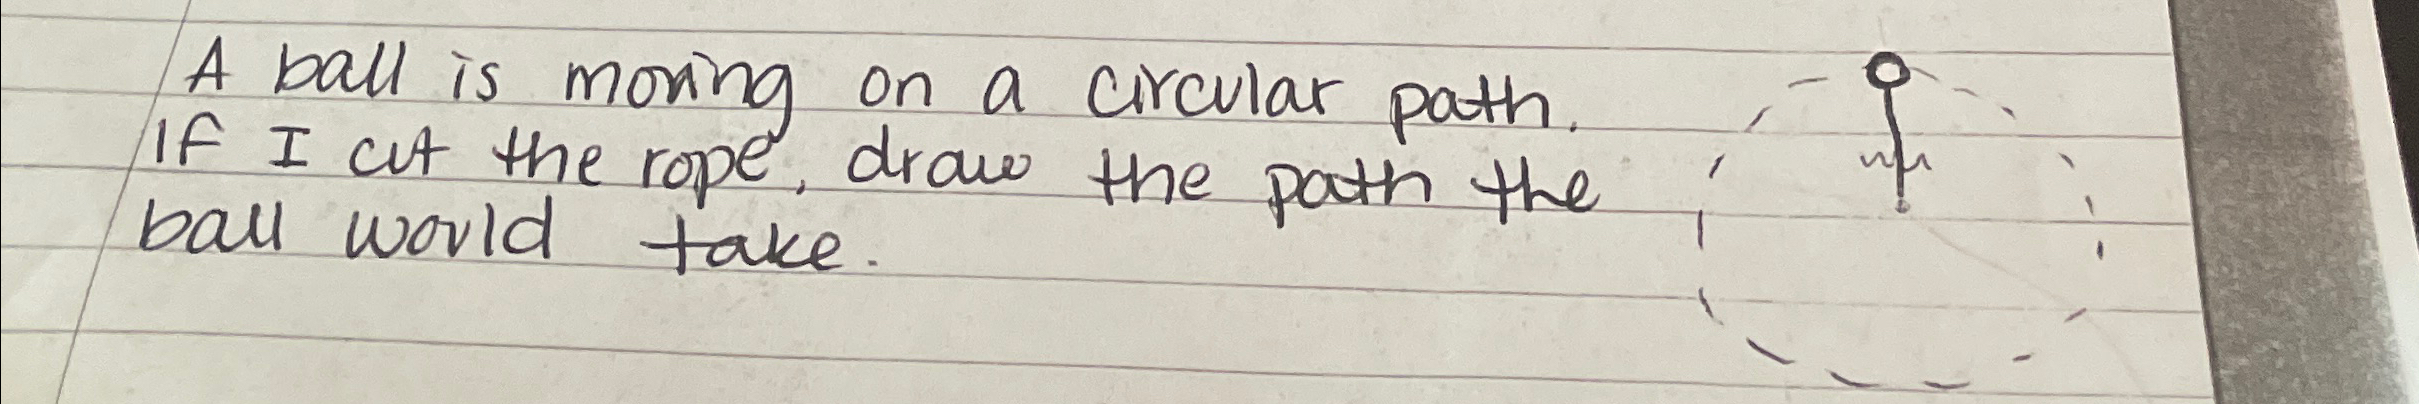 A ball is moving on a circular path.
If I cut the rope, draw the path the
ball would take.